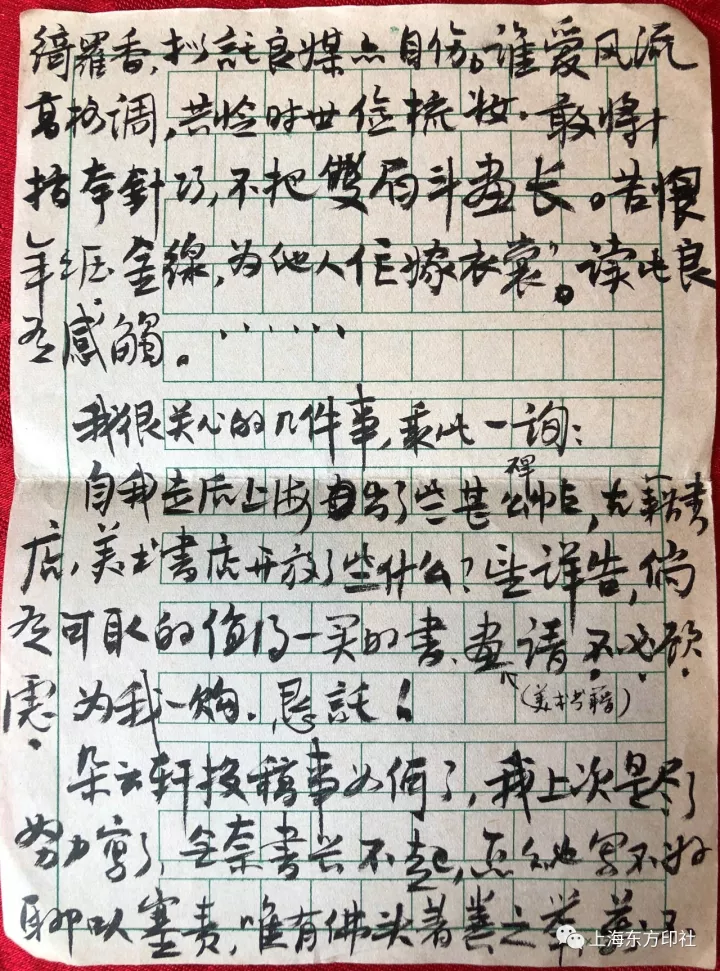 绮羅香,拟託良媒亦自伤。谁爱风流
高格调,共怜时世俭梳妆.敢将十
指夸針巧,不把雙眉斗畫长。苦恨
年年压金線,为他人作嫁衣裳”。读此良
有感觸。……
我很关心的几件事,乘此一詢:
自我走后上海出了些甚么碑帖,古籍书
店、美术書店开放了些什么?望詳告,倘
有可取的值得一买的書、画请不必顾
(美术书籍)
慮.为我一购.恳託!
朵云轩投稿事如何了,我上次是尽了
努力寫了,無奈書兴不起,怎么也写不好
聊以塞责,唯有佛头著粪之举,
上海东方印社